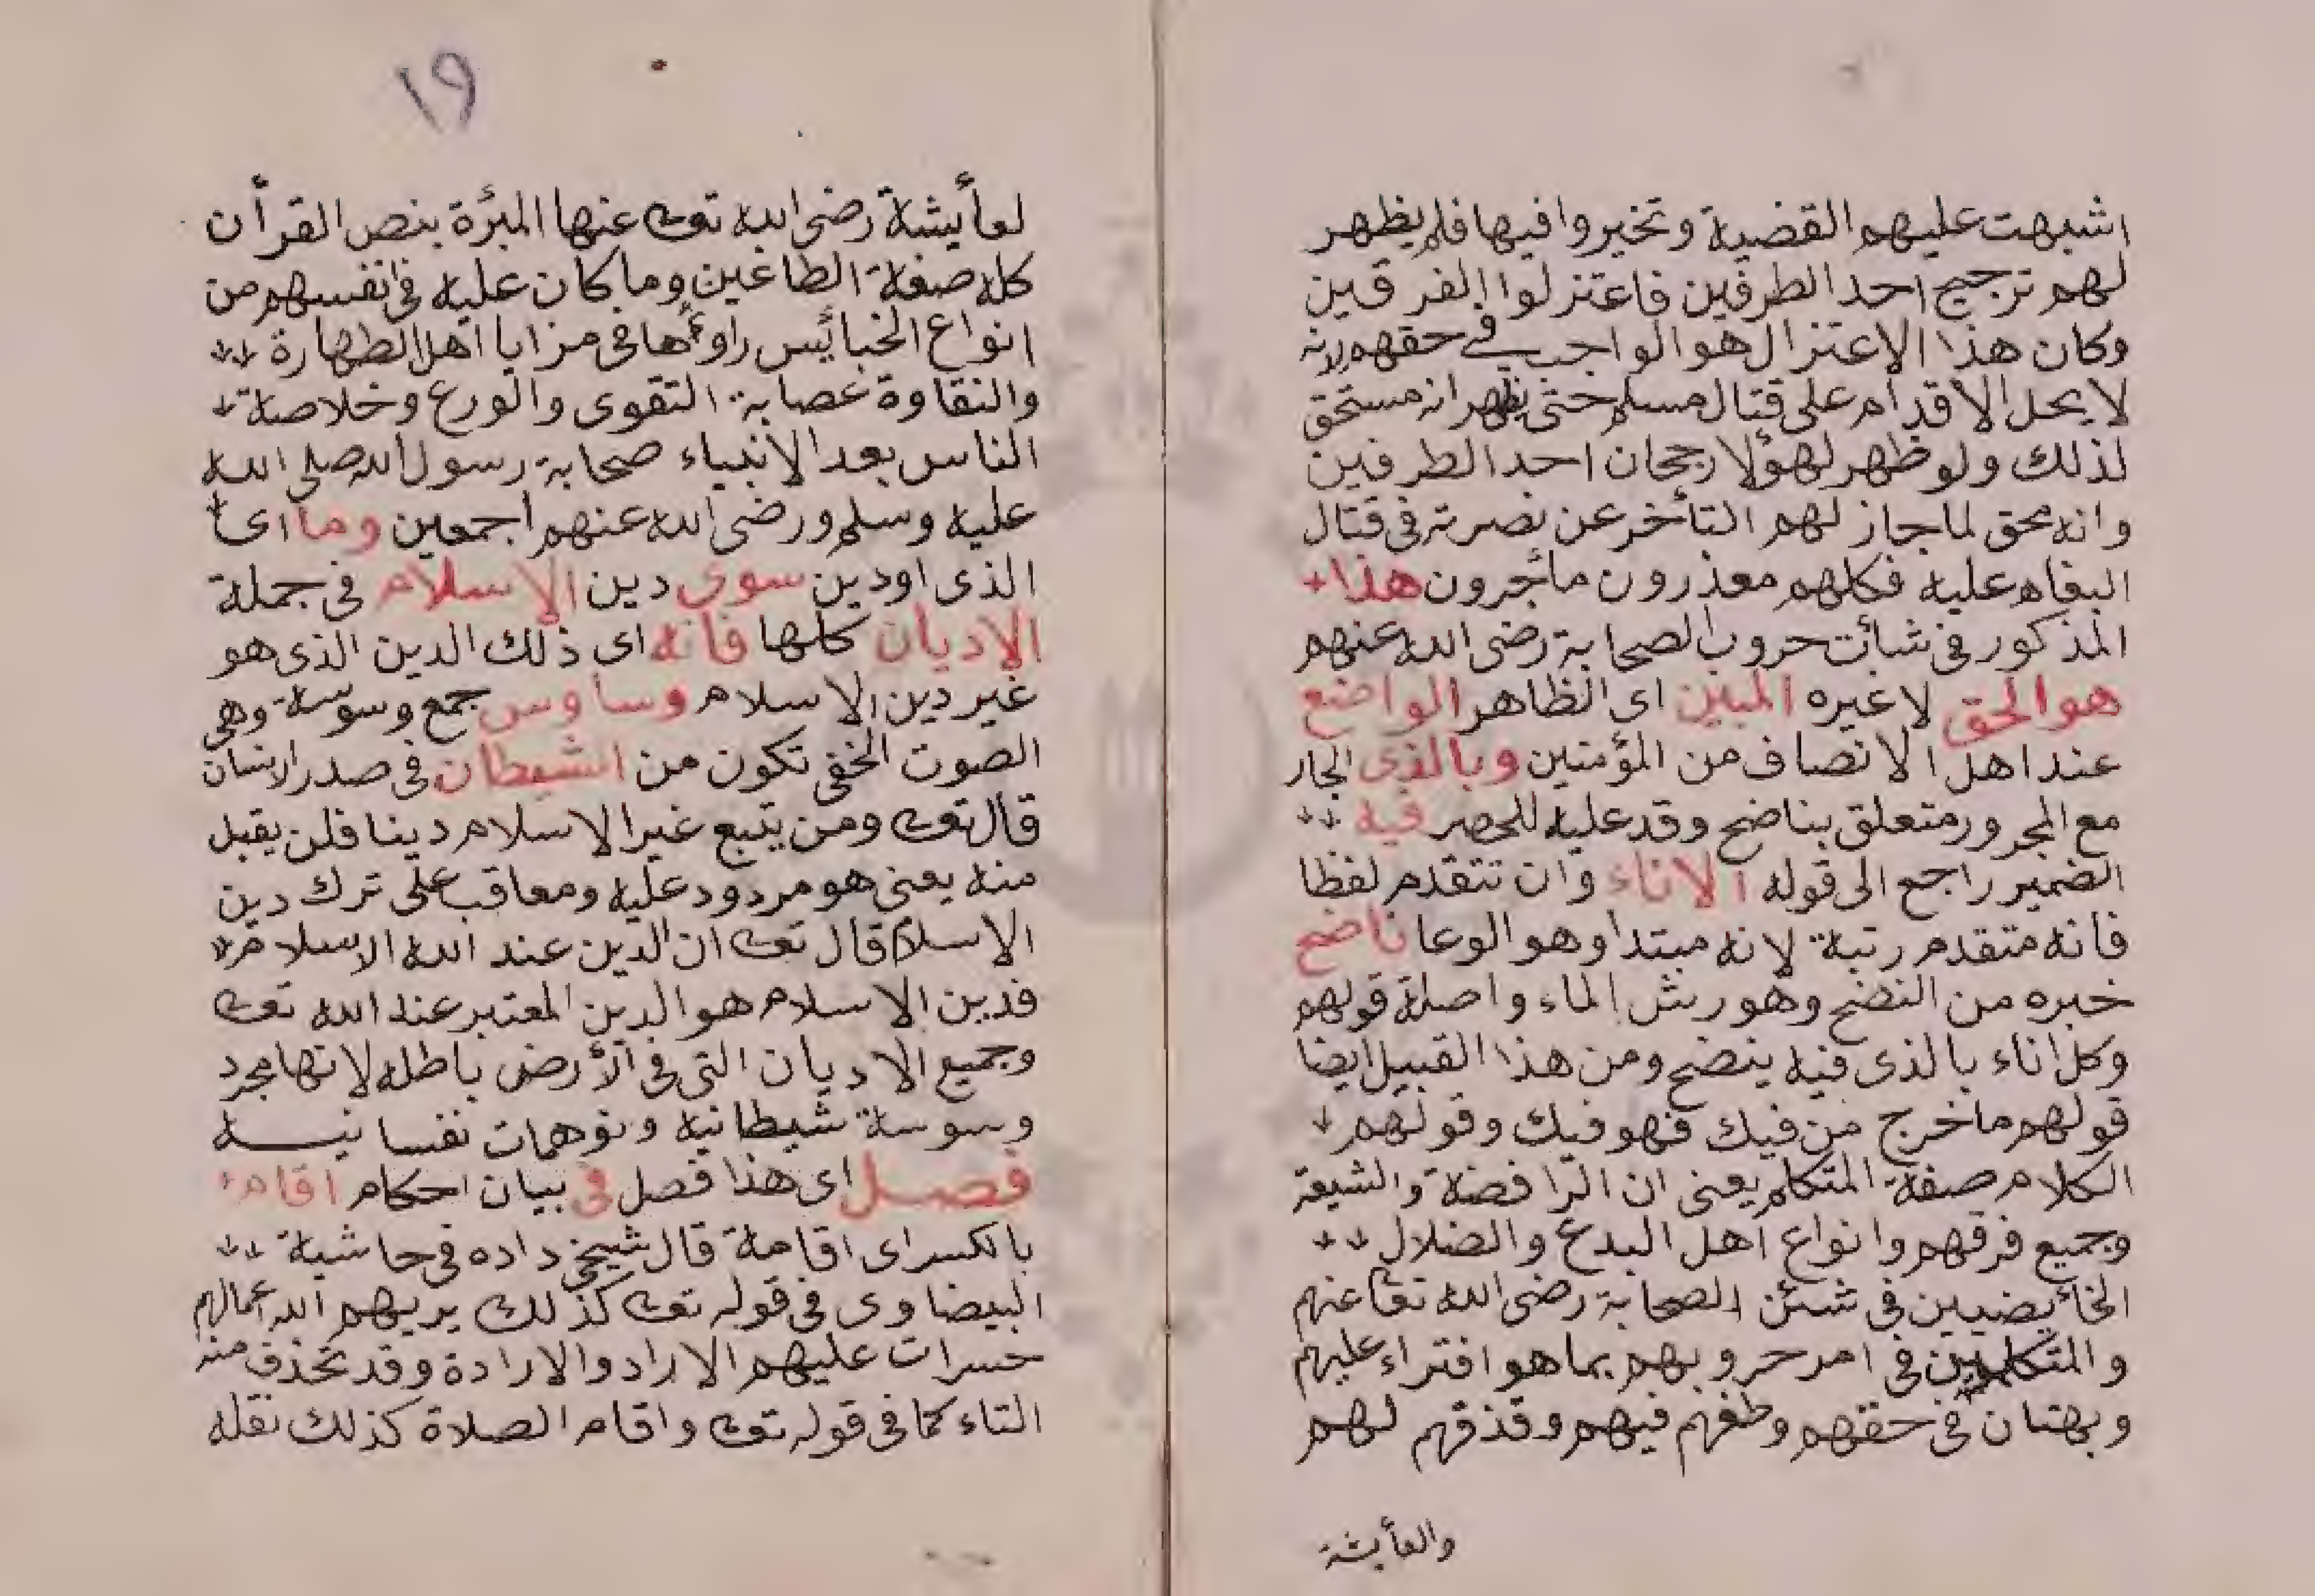 اشبهت عليهم القضية وتخيروا فيها فلم يظهر
لهم ترجيح احد الطرفين فاعتزلوا الفرقين
وكان هذا الاعتزال هو الواجب في حقهم لانه
لا يحل الاقدام على قتال مسلم حتى يظهر انه مستحق
لذلك ولو ظهر لهؤلا رجحان احد الطرفين
وانه محق لما جاز لهم التأخر عن نصرته في قتال
البغاه عليه فكلهم معذرون مأجرون هذا
المذكور في شأت حروب الصحابة رضى الله عنهم
هو الحق لا غيره المبين اى الظاهر الواضع
عند اهل الانصاف من المؤمنين وبالذى الجار
مع المجرور متعلق بناضح وقد عليه للحصر فيه
الضمير راجع الى قوله الاناء وان تتقدم لفظا
فانه متقدم رتبة لانه مبتدا وهو الوعا ناضح
خبره من النضح وهو رش الماء واصله قولهم
وكل اناء بالذى فيه ينضح ومن هذا القبيل ايضا
قولهم ما خرج من فيك فهو فيك وقولهم
الكلام صفة المتكلم يعنى ان الرافضة والشيعة
وجميع فرقهم وانواع اهل البدع والضلال
الخائضيين في شئن الصحابة رضى الله تعا عنهم
والمتكلمين في امر حروبهم بما هو افتراء عليهم
وبهتان في حقهم وطغهم فيهم وقذقهم لهم
والعأيشة
١٩
لعأيشة رضى الله تعا عنها المبرئة بنص القرأن
كله صفة الطاغين وما كان عليه في انفسهم من
انواع الخبائس راوءها في مزايا اهل الطهارة
والنقاوة عصابة التقوى والورع وخلاصة
الناس بعد الانبياء صحابة رسول الله صلى الله
عليه وسلم ورضى الله عنهم اجمعين وما اى
الذى او دين سوى دين الاسلام في جملة
الاديان كلها فانه اى ذلك الدين الذى هو
غير دين الاسلام وساوس جمع وسوسة وهى
الصوت الخفى تكون من الشيطان في صدر الانسان
قال تعا ومن يتبع غير الاسلام دينا فلن يقبل
منه يعنى هو مردود عليه ومعاقب على ترك دين
الاسلام قال تعا ان الدين عند الله الاسلام
فدين الاسلام هو الدين المعتبر عند الله تعا
وجميع الاديان التى في الأرض باطله لانها مجرد
وسوسة شيطانية وتوهمات نفسانيه
فصل اى هذا فصل في بيان احكام اقام
بالكسر اى اقامة قال شيخي داده في حاشية
البيضاوى في قوله تعا كذلك يريهم الله اعمالهم
حسرات عليهم الاراد والارادة وقد تحذف منه
التاء كما في قوله تعا واقام الصلاة كذلك نقله